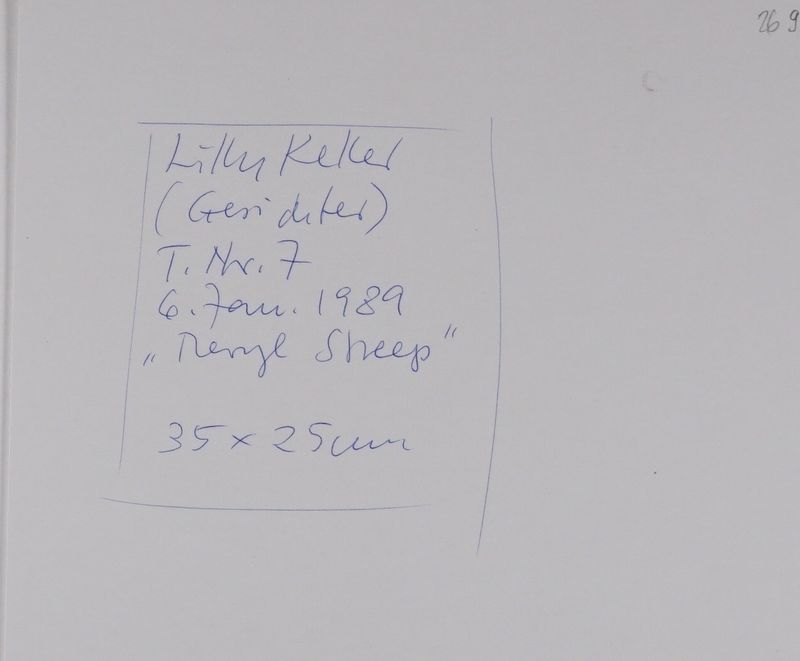 26 9
Lilly Keller
(Gesichter)
T. Nr. 7
6. Jan. 1989
„Meryl Streep“
35 x 25 cm